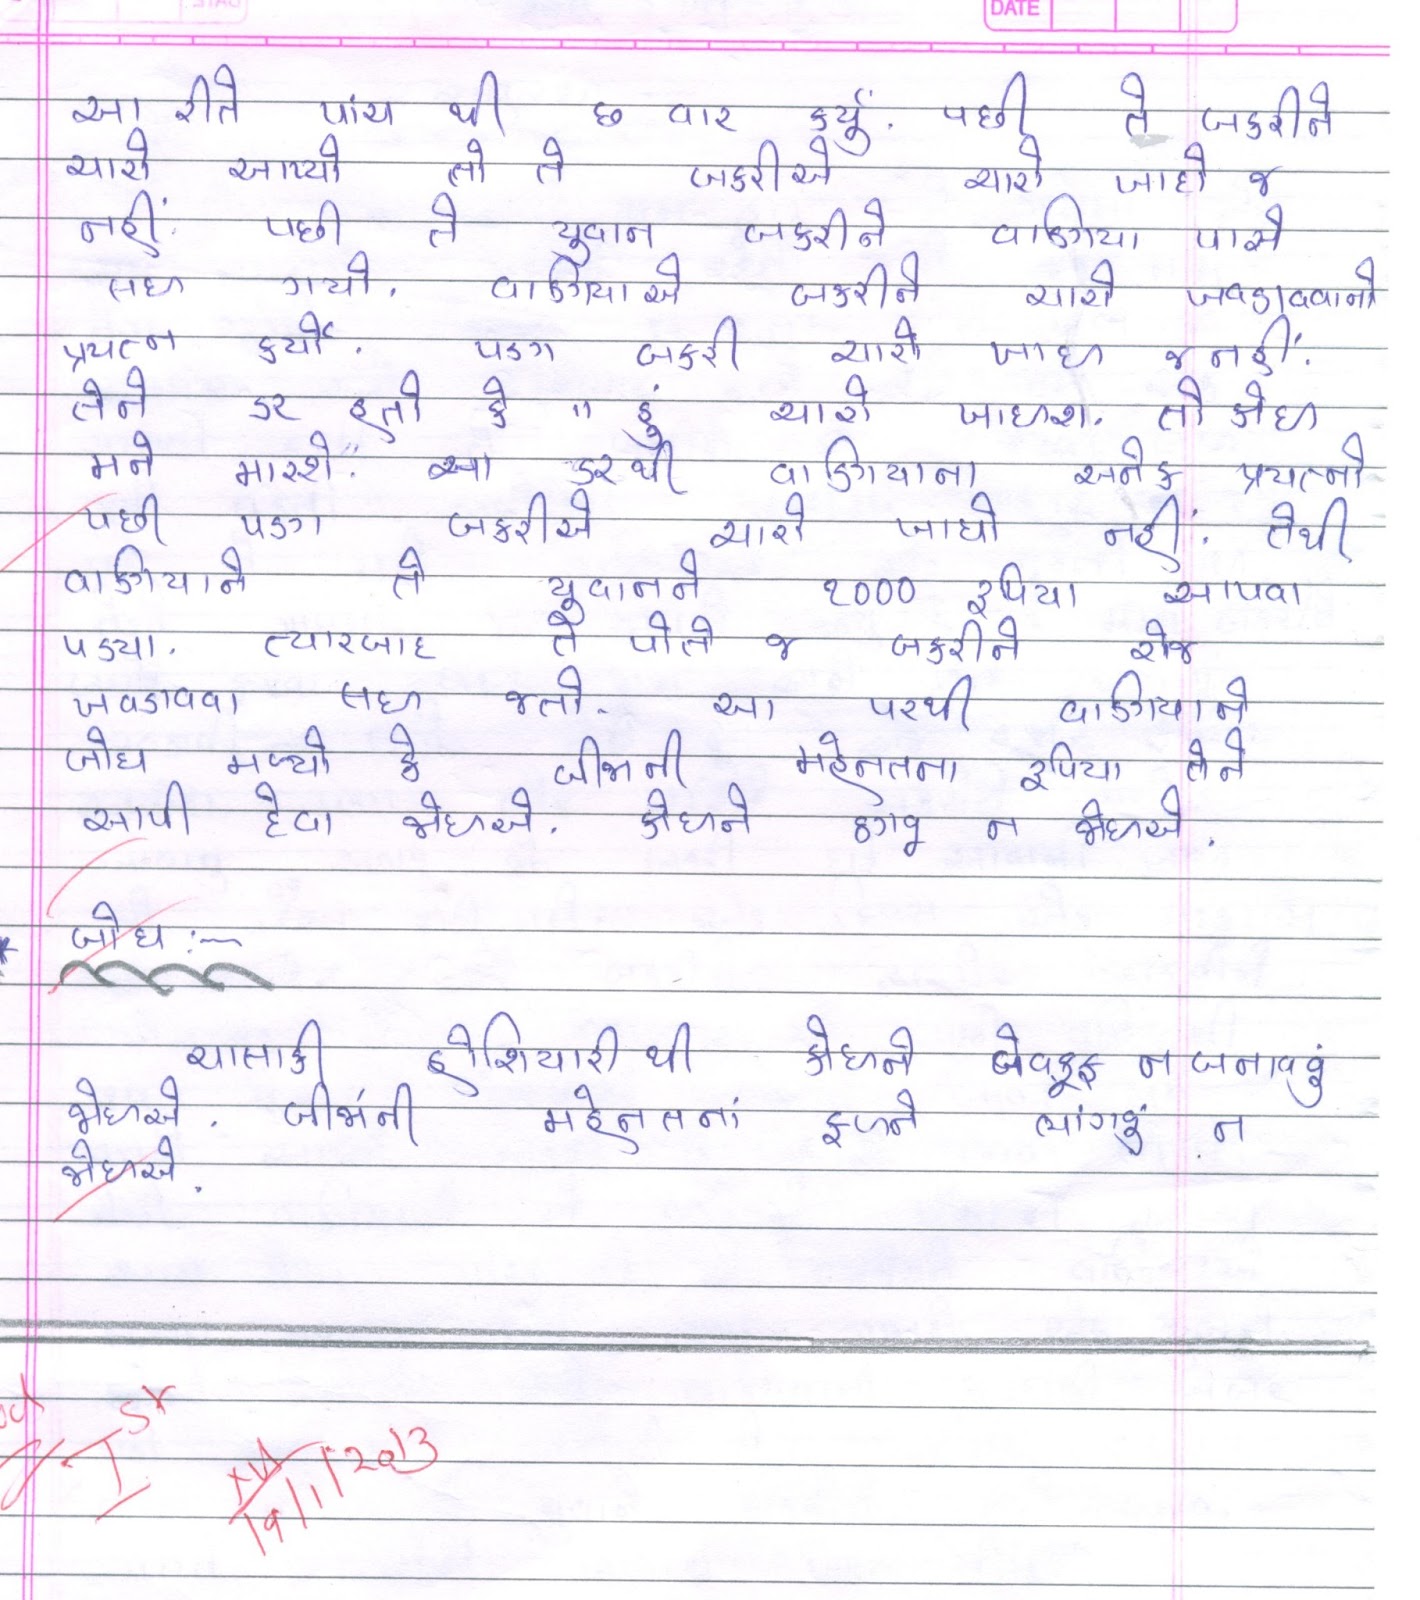 DATE
આ રીતે પાંચ થી છ વાર કર્યું. પછી તે બકરીને
ચારો આપ્યો તો તે બકરીએ ચારો ખાધો જ
નહીં. પછી તે યુવાન બકરીને વાણિયા પાસે
લઇ ગયો. વાણિયાએ બકરીને ચારો ખવડાવવાનો
પ્રયત્ન કર્યો. પણ બકરી ચારો ખાઇ જ નહીં.
તેને ડર હતો કે "હું ચારો ખાઇશ. તો કોઇ
મને મારશે." આ ડરથી વાણિયાના અનેક પ્રયત્નો
પછી પણ બકરીએ ચારો ખાધો નહીં. તેથી
વાણિયાને તે યુવાનને ૧૦૦૦ રૂપિયા આપવા
પડ્યા. ત્યારબાદ તે પોતે જ બકરીને રોજ
ખવડાવવા લઇ જતો. આ પરથી વાણિયાને
બોધ મળ્યો કે બીજાની મહેનતના રૂપિયા તેને
આપી દેવા જોઇએ. કોઇને ઠગવુ ન જોઇએ.
* બોધ :~
ચાલાકી હોશિયારી થી કોઇને બેવકૂફ ન બનાવવું
જોઇએ. બીજાંની મહેનતનાં ફળને ભાંગવું ન
જોઇએ.
19/1/2013